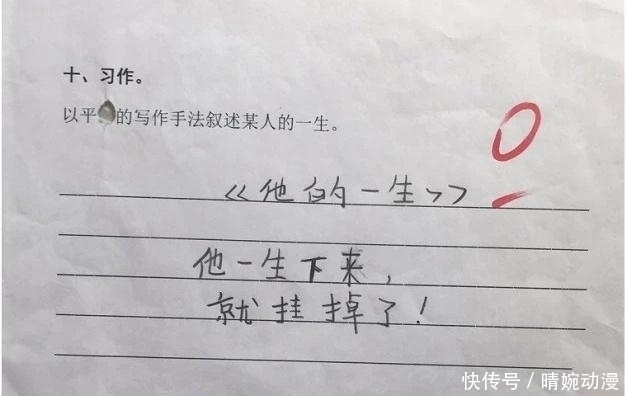 十、习作。
以平 的写作手法叙述某人的一生。
0
《他的一生》
他一生下来,
就挂掉了!
快传号 / 晴婉动漫